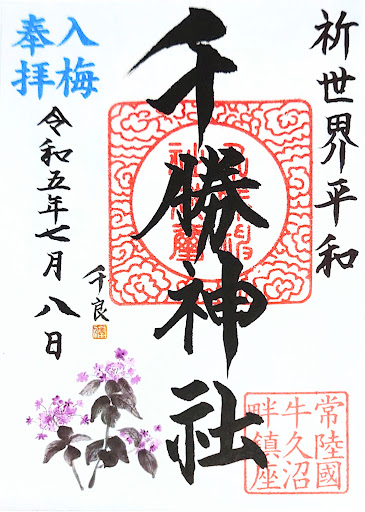 祈世界平和
千勝神社
入梅
奉拝
令和五年七月八日
千良
常陸國
牛久沼
畔鎮座